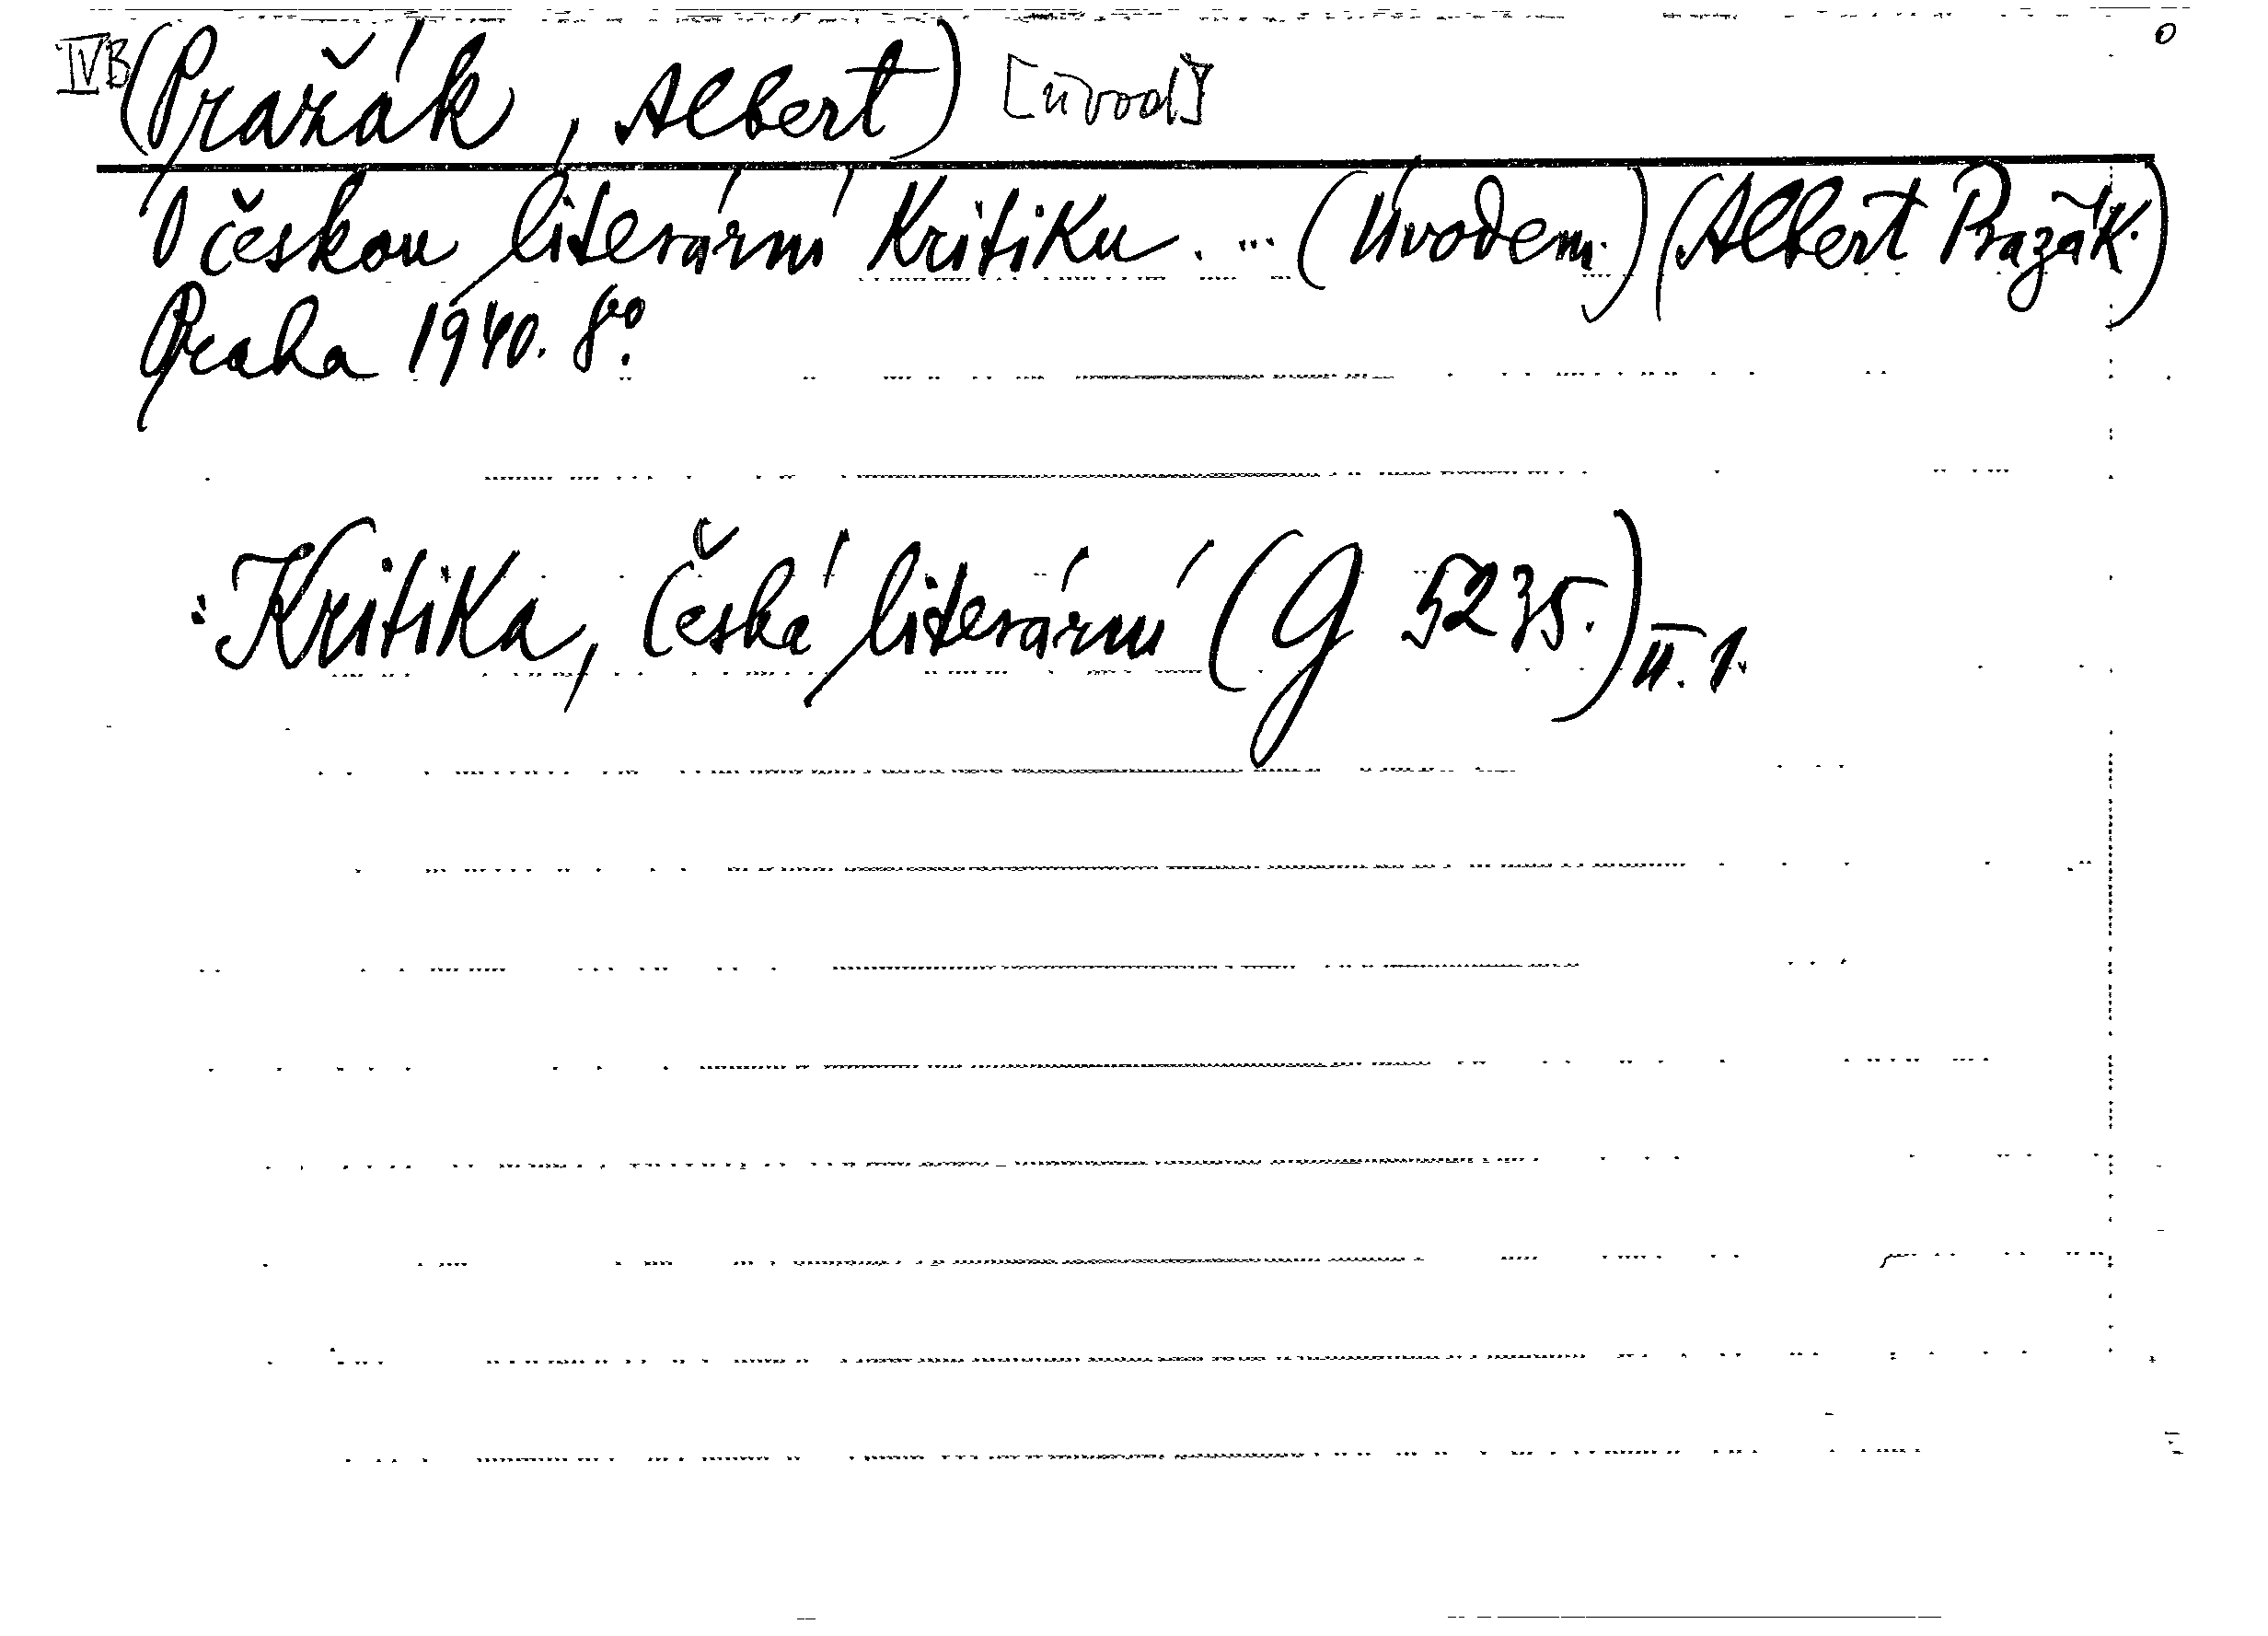 IVB (Pražák, Albert) [úvod]
O českou literární kritiku. ... (Úvodem.) (Albert Pražák.)
Praha 1940. 8vo.
: Kritika, česká literární (G 5235.) II. 1.